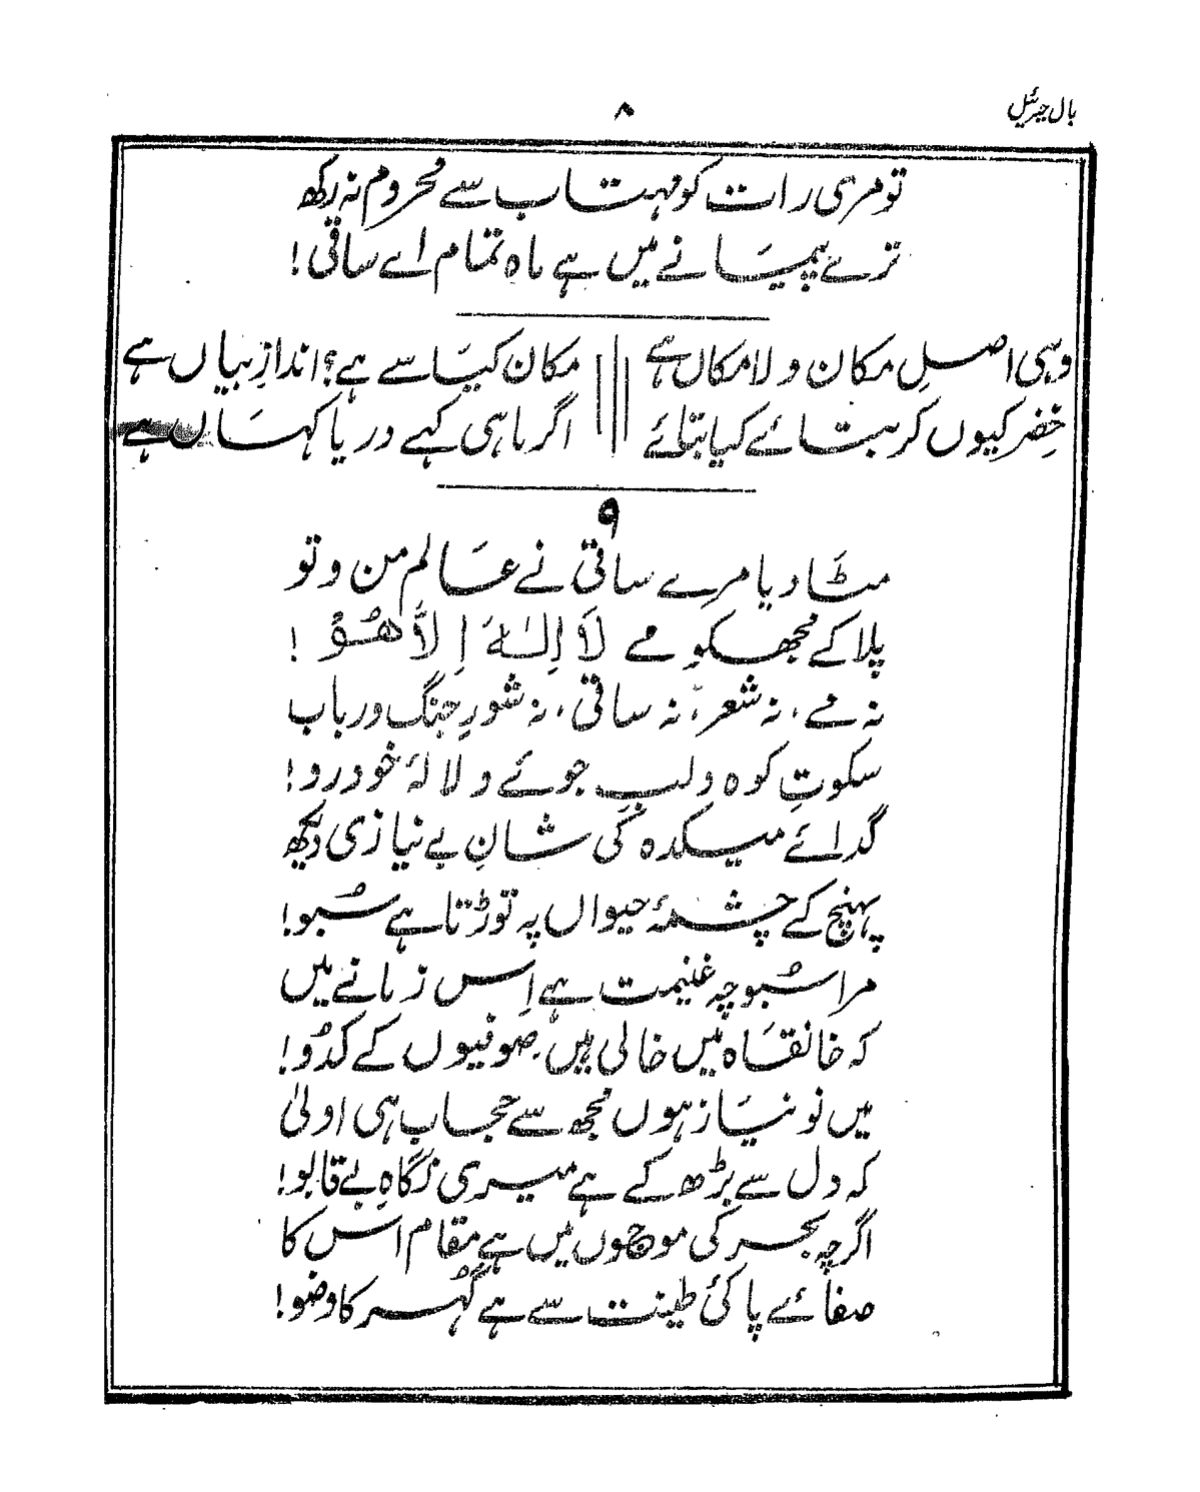 بال جبریل
۸
تو مری رات کو مہتاب سے محروم نہ رکھ
ترے پیمانے میں ہے ماہ تمام اے ساقی!
وہی اصلِ مکان و لامکاں ہے
مکان کیا سے ہے؟ اندازِ بیاں ہے
خِضر کیوں کر بتائے کیا بتائے
اگر ماہی کہے دریا کہاں ہے
۹
مٹا دیا مرے ساقی نے عالم من و تو
پلا کے مجھکو مے لَا اِلٰہَ اِلَّا ھُوْ!
نہ مے، نہ شعر، نہ ساقی، نہ شورِ چنگ و رباب
سکوتِ کوہ و لبِ جوئے و لالۂ خودرو!
گدائے میکدہ کی شانِ بے نیازی دیکھ
پہنچ کے چشمۂ حیواں پہ توڑتا ہے سُبو!
مرا سُبوچہ غنیمت ہے اِس زمانے میں
کہ خانقاہ میں خالی ہیں صوفیوں کے کدُو!
میں نو نیاز ہوں مجھ سے حجاب ہی اولیٰ
کہ دل سے بڑھ کے ہے میری نگاہِ بے قابو!
اگرچہ بحر کی موجوں میں ہے مقام اس کا
صفائے پاکئ طینت سے ہے گُہر کا وضو!